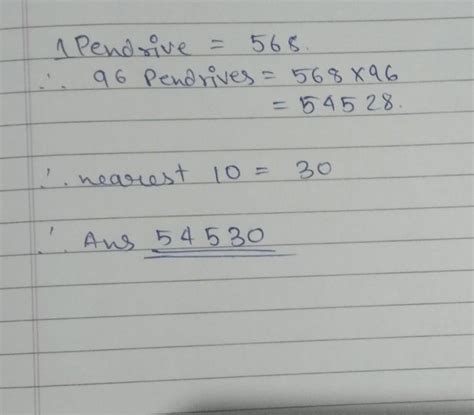 1 Pendrive = 568.
∴ 96 Pendrives = 568 x 96
= 54528.
∴ nearest 10 = 30
∴ Ans 54530